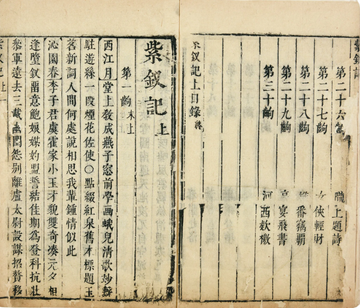 紫釵記
第二十六齣 隴上題詩
第二十七齣 女俠輕財
第二十八齣 雄番竊霸
第二十九齣 高宴飛書
第三十齣 河西款檄
紫釵記上目錄終
紫釵記上
第一齣 末上
西江月堂上教成燕子窗前學畫蛾兒清歌妙舞
駐遊絲一段煙花佐使○點綴紅泉舊本標題玉
茗新詞人間何處說相思我輩鍾情似此
沁園春李子君虞霍家小玉才貌雙奇湊元夕相
逢墮釵留意鮑娘媒妁盟誓結佳期為登科抗壯
參軍遠去三載幽閨怨別離盧太尉設謀招贅移
紫釵記 上